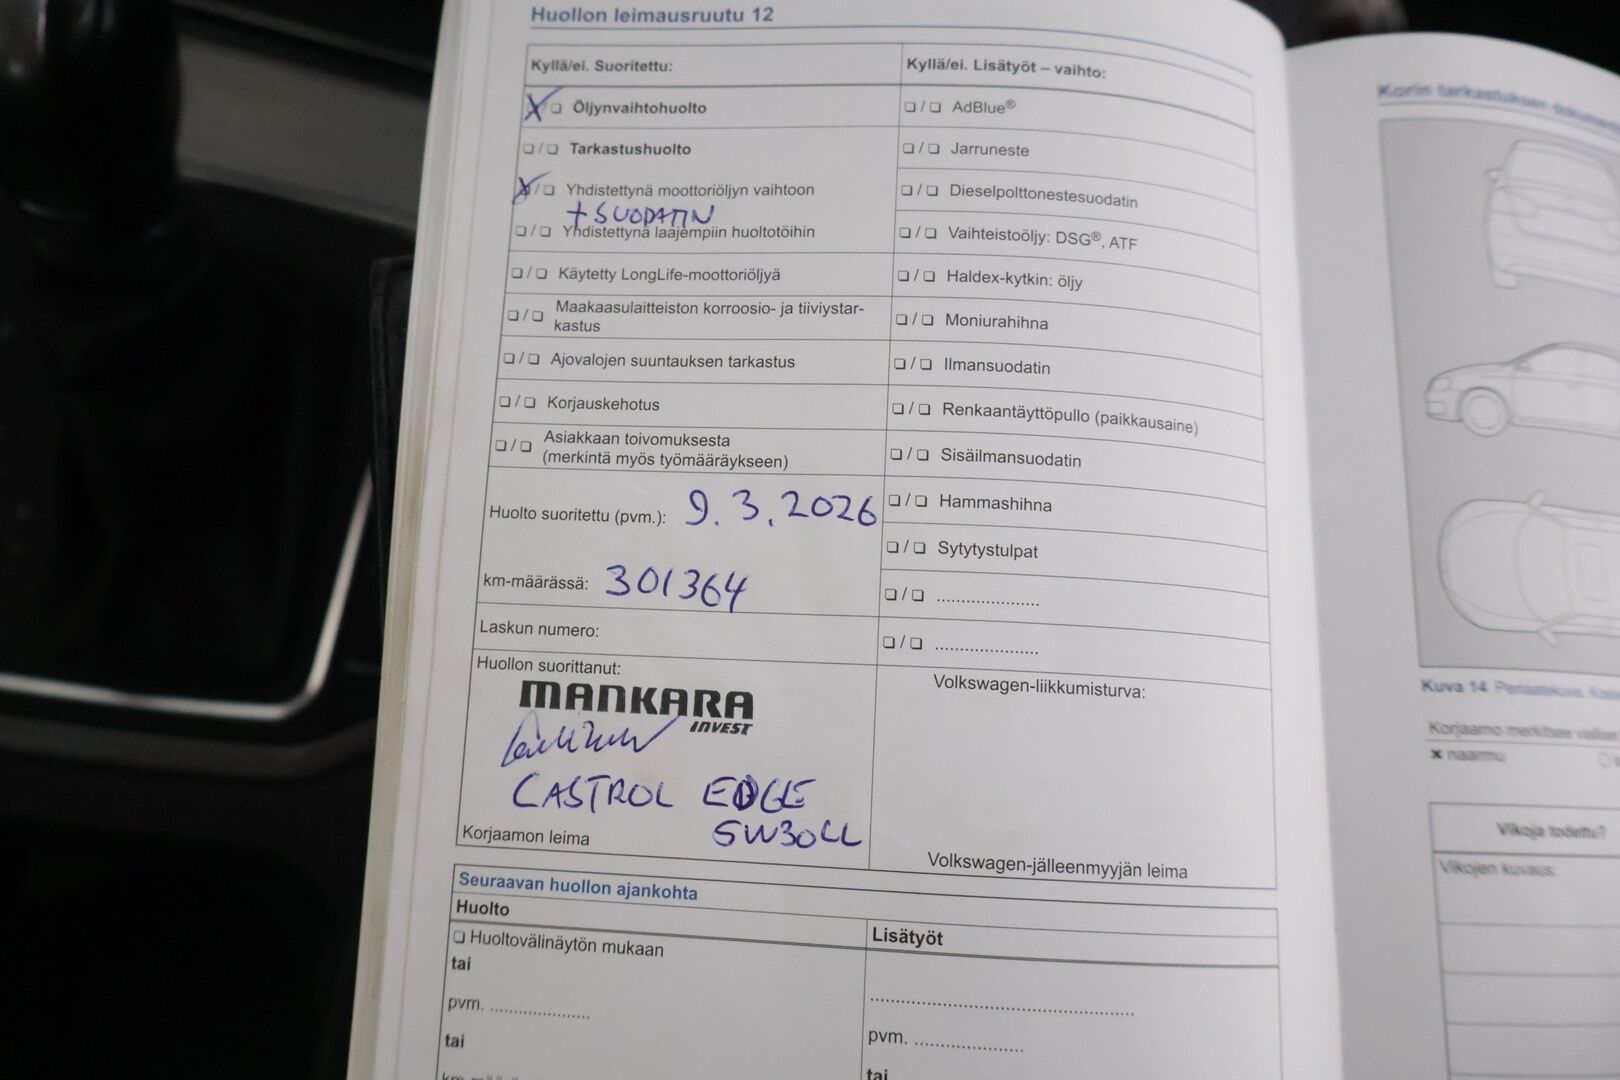 Huollon leimausruutu 12
Kyllä/ei. Suoritettu:
❏ Öljynvaihtohuolto
❏ / ❏ Tarkastushuolto
/ ❏ Yhdistettynä moottoriöljyn vaihtoon
+ SUODATIN
❏ / ❏ Yhdistettynä laajempiin huoltotöihin
❏ / ❏ Käytetty LongLife-moottoriöljyä
❏ / ❏ Maakaasulaitteiston korroosio- ja tiiviystar-
kastus
❏ / ❏ Ajovalojen suuntauksen tarkastus
❏ / ❏ Korjauskehotus
❏ / ❏ Asiakkaan toivomuksesta
(merkintä myös työmääräykseen)
Huolto suoritettu (pvm.): 9.3.2026
km-määrässä: 301364
Laskun numero:
Huollon suorittanut:
MANKARA
INVEST
CASTROL EDGE
5W30LL
Korjaamon leima
Kyllä/ei. Lisätyöt – vaihto:
❏ / ❏ AdBlue®
❏ / ❏ Jarruneste
❏ / ❏ Dieselpolttonestesuodatin
❏ / ❏ Vaihteistoöljy: DSG®, ATF
❏ / ❏ Haldex-kytkin: öljy
❏ / ❏ Moniurahihna
❏ / ❏ Ilmansuodatin
❏ / ❏ Renkaantäyttöpullo (paikkausaine)
❏ / ❏ Sisäilmansuodatin
❏ / ❏ Hammashihna
❏ / ❏ Sytytystulpat
❏ / ❏ .....................
❏ / ❏ .....................
Volkswagen-liikkumisturva:
Volkswagen-jälleenmyyjän leima
Seuraavan huollon ajankohta
Huolto
❏ Huoltovälinäytön mukaan
tai
pvm. ....................
tai
Lisätyöt
.....................................................
pvm. ......................
tai
Korin tarkastukset
Kuva 14 Periaatekuva
Korjaamo merkitsee
x naarmu
Vikoja todettu?
Vikojen kuvaus: